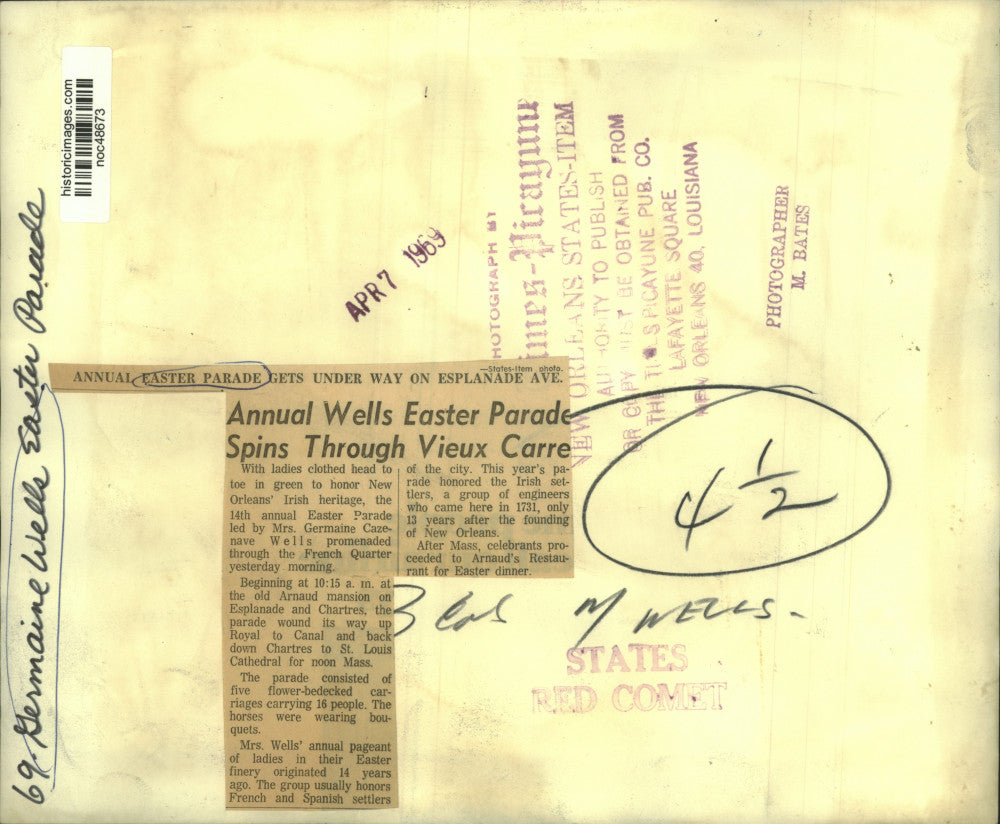 historicimages.com
noc48673
69. Germaine Wells Easter Parade
APR 7 1969
PHOTOGRAPH BY
Times-Picayune
NEW ORLEANS STATES-ITEM
AUTHORITY TO PUBLISH
OR COPY MUST BE OBTAINED FROM
THE TIMES PICAYUNE PUB. CO.
LAFAYETTE SQUARE
NEW ORLEANS 40, LOUISIANA
PHOTOGRAPHER
M. BATES
—States-Item photo.
ANNUAL EASTER PARADE GETS UNDER WAY ON ESPLANADE AVE.
Annual Wells Easter Parade
Spins Through Vieux Carre
With ladies clothed head to
toe in green to honor New
Orleans' Irish heritage, the
14th annual Easter Parade
led by Mrs. Germaine Caze-
nave Wells promenaded
through the French Quarter
yesterday morning.
Beginning at 10:15 a. m. at
the old Arnaud mansion on
Esplanade and Chartres, the
parade wound its way up
Royal to Canal and back
down Chartres to St. Louis
Cathedral for noon Mass.
The parade consisted of
five flower-bedecked car-
riages carrying 16 people. The
horses were wearing bou-
quets.
Mrs. Wells' annual pageant
of ladies in their Easter
finery originated 14 years
ago. The group usually honors
French and Spanish settlers
of the city. This year's pa-
rade honored the Irish set-
tlers, a group of engineers
who came here in 1731, only
13 years after the founding
of New Orleans.
After Mass, celebrants pro-
ceeded to Arnaud's Restau-
rant for Easter dinner.
4 1/2
3 Cols M WELLS-
STATES
RED COMET